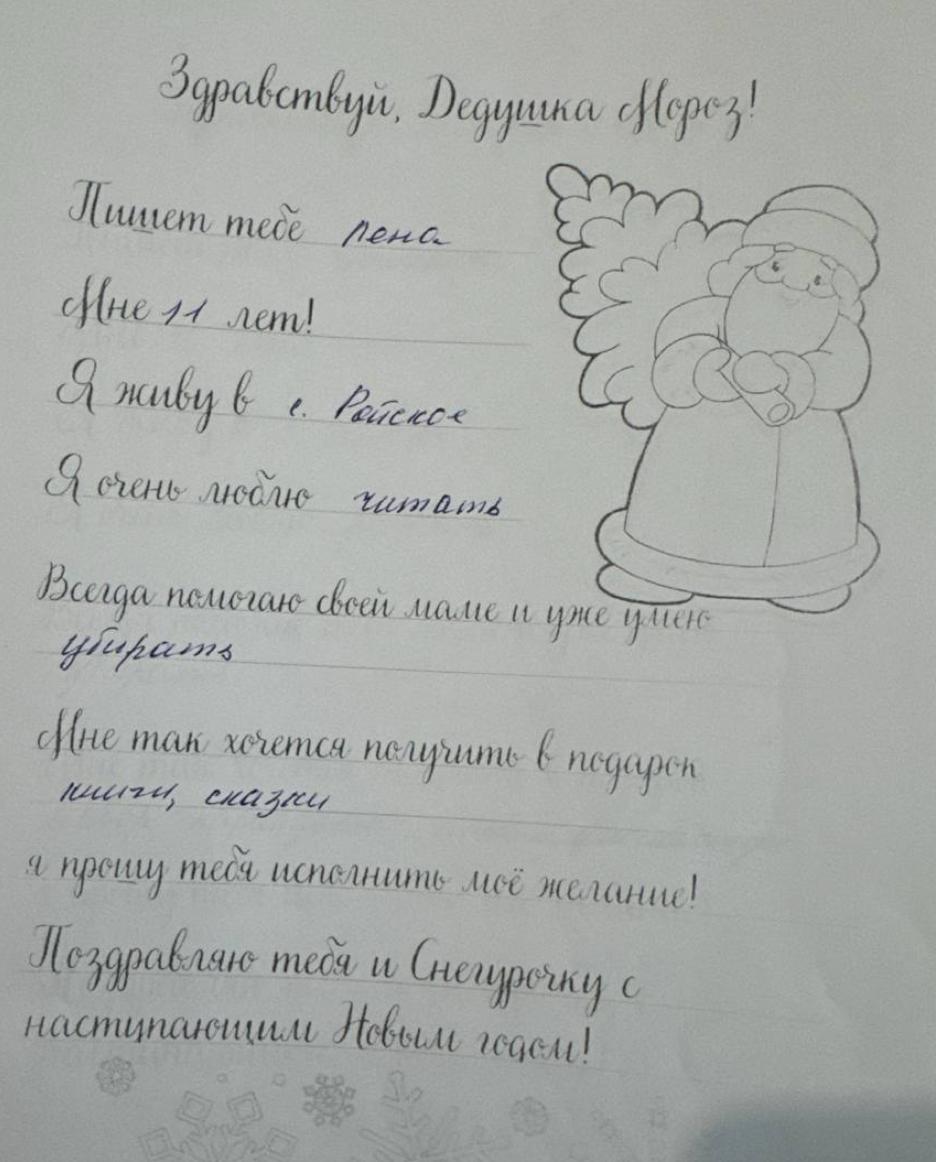 Здравствуй, Дедушка Мороз!
Пишет тебе Лена
Мне 11 лет!
Я живу в с. Райское
Я очень люблю читать
Всегда помогаю своей маме и уже умею
убирать
Мне так хочется получить в подарок
книги, сказки
я прошу тебя исполнить моё желание!
Поздравляю тебя и Снегурочку с
наступающим Новым годом!